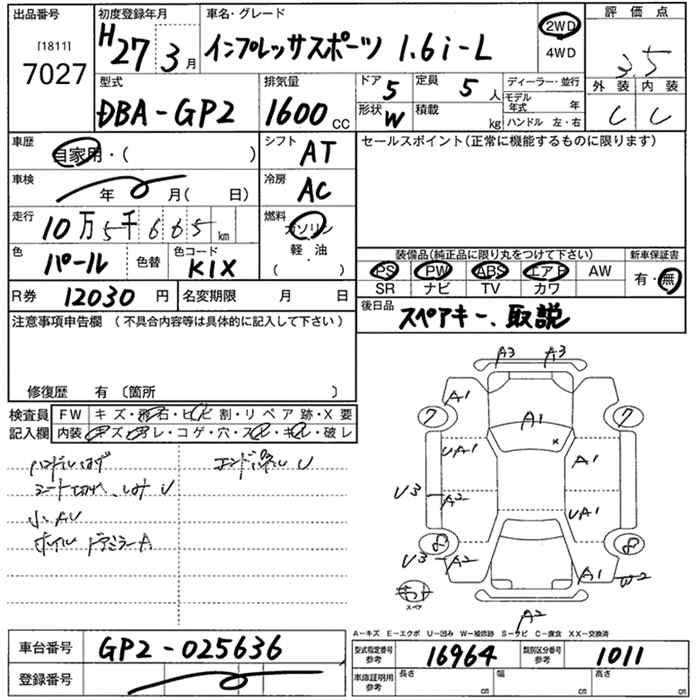 出品番号 初度登録年月 車名・グレード 評価点
[1811] 7027 H27 3月 インプレッサスポーツ 1.6i-L 2WD 4WD 3.5
型式 排気量 ドア 5 定員 5人 ディーラー・並行 外装 内装
DBA-GP2 1600cc 形状 W 積載 kg モデル年式 年 ハンドル 左・右 C C
車歴 自家用・( ) シフト AT セールスポイント(正常に機能するものに限ります)
車検 年 月( 日) 冷房 AC
走行 10万5千665km 燃料 ガソリン 軽・油 ( ・ )
色 パール 色替 色コード K1X 装備品(純正品に限り丸をつけて下さい) 新車保証書
PS PW ABS エアB AW 有・無
SR ナビ TV カワ
R券 12030円 名変期限 月 日 後日品 スペアキー、取説
注意事項申告欄 (不具合内容等は具体的に記入して下さい)
修復歴 有 〔箇所 〕
検査員 FW キズ・飛石・ヒビ割・リペア跡・X要
記入欄 内装 キズ・アレ・コゲ・穴・スレ・キレ・破レ
エンドパネルU
小AU
ドアミラーA
A3 A3
A1
7 A1 7
UA1 A1
U3 A2 UA1
8 8
U3 A2 A1 W2
スペア
A2
A-キズ E-エクボ U-凹み W-補修跡 S-サビ C-腐食 XX-交換済
車台番号 GP2-025636 型式指定番号 参考 16964 類別区分番号 参考 1011
登録番号 車庫証明用 参考 長さ cm 幅 cm 高さ cm